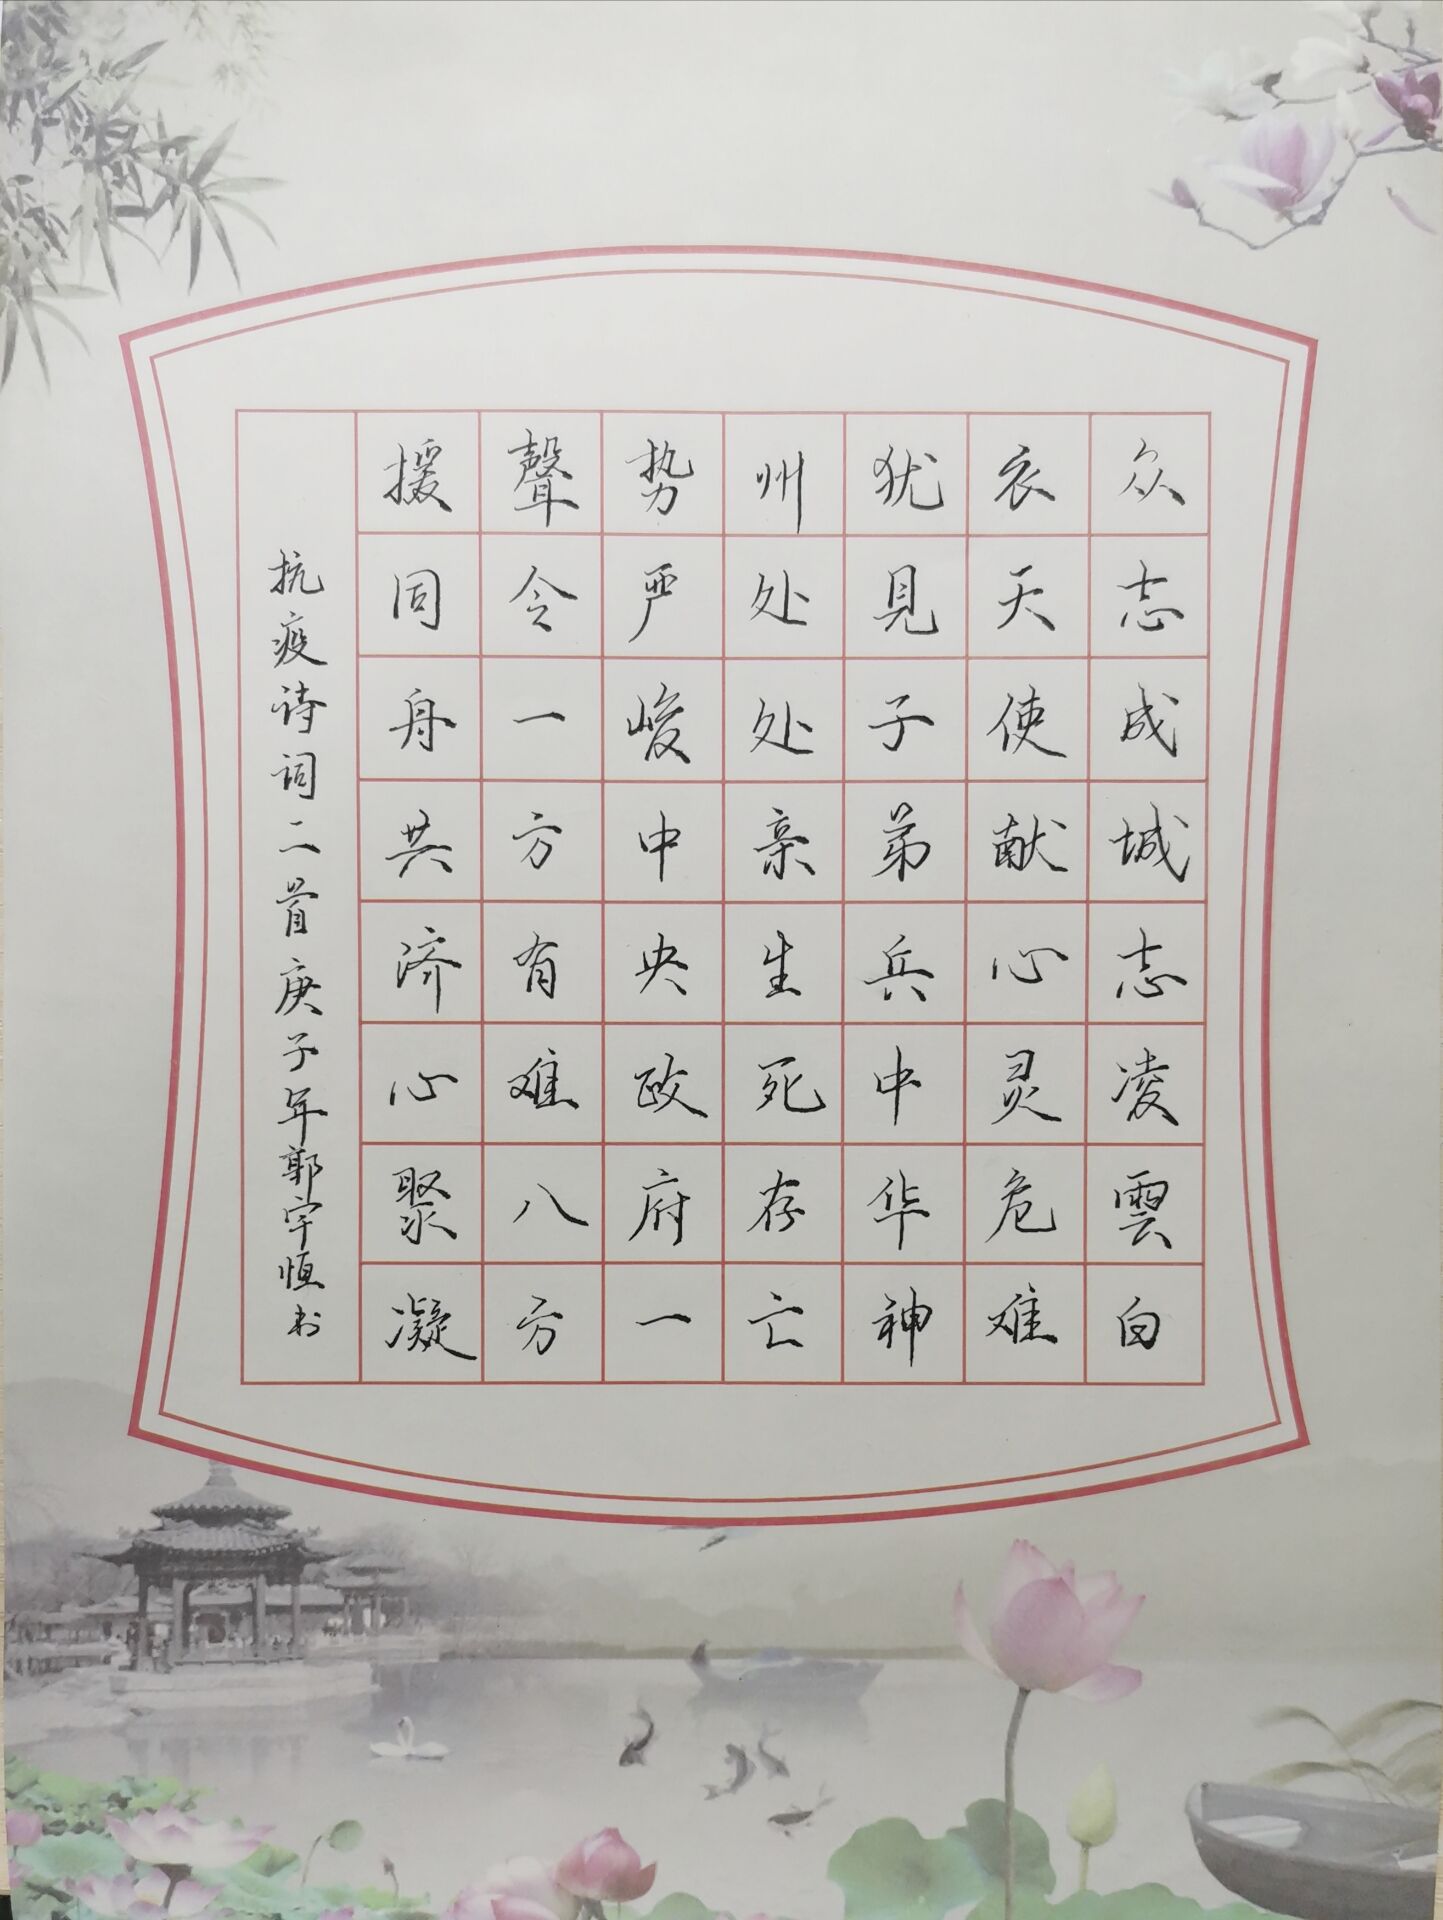 众志成城志凌雲白
衣天使献心灵危难
犹見子弟兵中华神
州处处亲生死存亡
势严峻中央政府一
聲令一方有难八方
援同舟共济心聚凝
抗疫诗词二首庚子年郭宇恒书